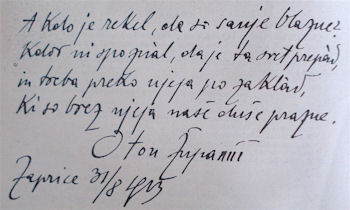 A kdo je rekel, da so sanje blazne?
Kdor ni spoznal, da je ta svet prepàd,
in treba preko njega po zaklàd,
ki so brez njega naše duše prazne.
Oton Župančič
Zaprice 31/8 1913